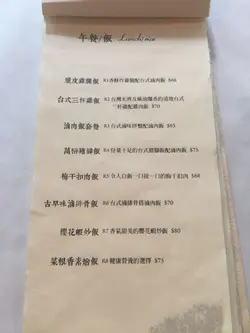 午餐/飯 Lunch/rice
脆皮雞腿飯 R1香酥炸雞腿配台式滷肉飯 $68
台式三杯雞飯 R2台灣米酒及麻油爆香的道地台式
三杯雞配雞肉飯 $70
滷肉飯套餐 R3台式滷味拼盤配滷肉飯 $65
萬巒豬腳飯 R4份量十足的台式豬腳飯配滷肉飯 $75
梅干扣肉飯 R5令人自由一口接一口的梅干扣肉 $68
古早味滷排骨飯 R6台式滷排骨搭滷肉飯 $70
櫻花蝦炒飯 R7香氣甜美的櫻花蝦炒飯 $80
菜根香素燴飯 R8健康營養的選擇 $75